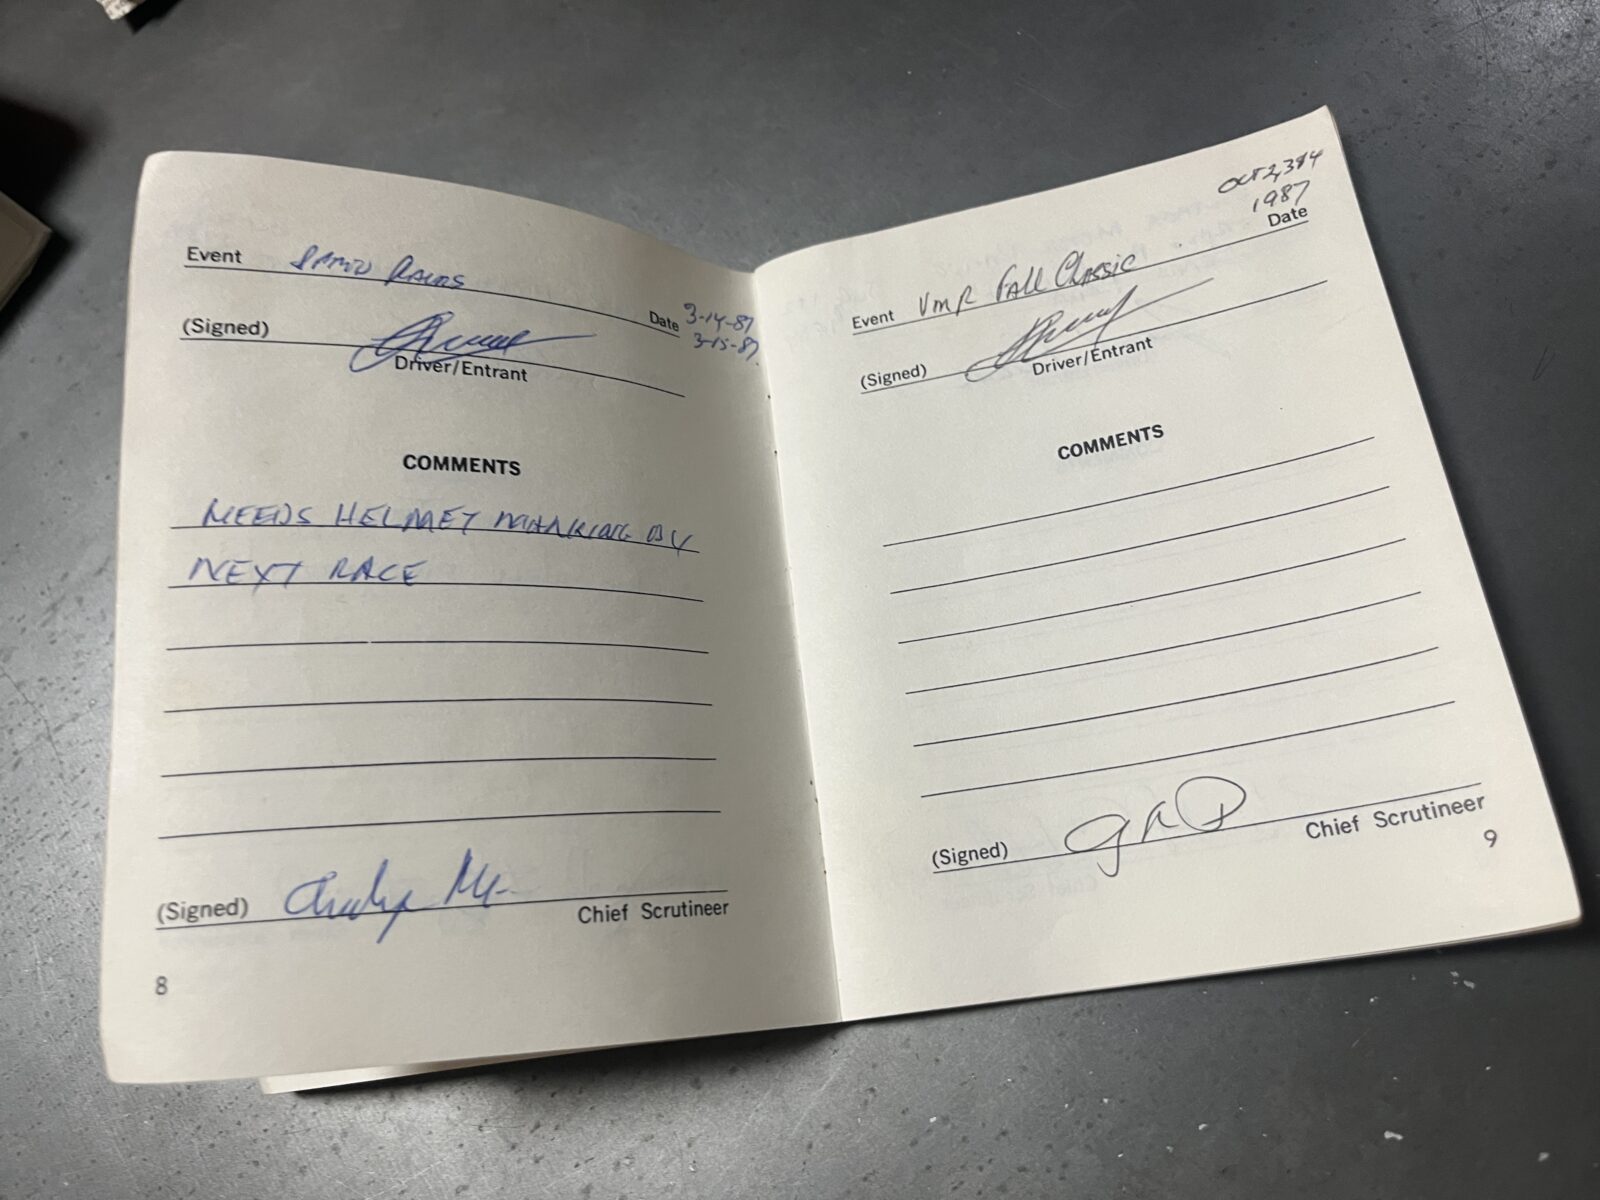 Event
Date 3-14-87
3-15-87
(Signed)
Driver/Entrant
COMMENTS
NEEDS HELMET MARKING BY
NEXT RACE
(Signed)
Chief Scrutineer
8
OCT 2,3&4
1987
Date
Event VMR FALL CLASSIC
(Signed)
Driver/Entrant
COMMENTS
(Signed)
Chief Scrutineer
9